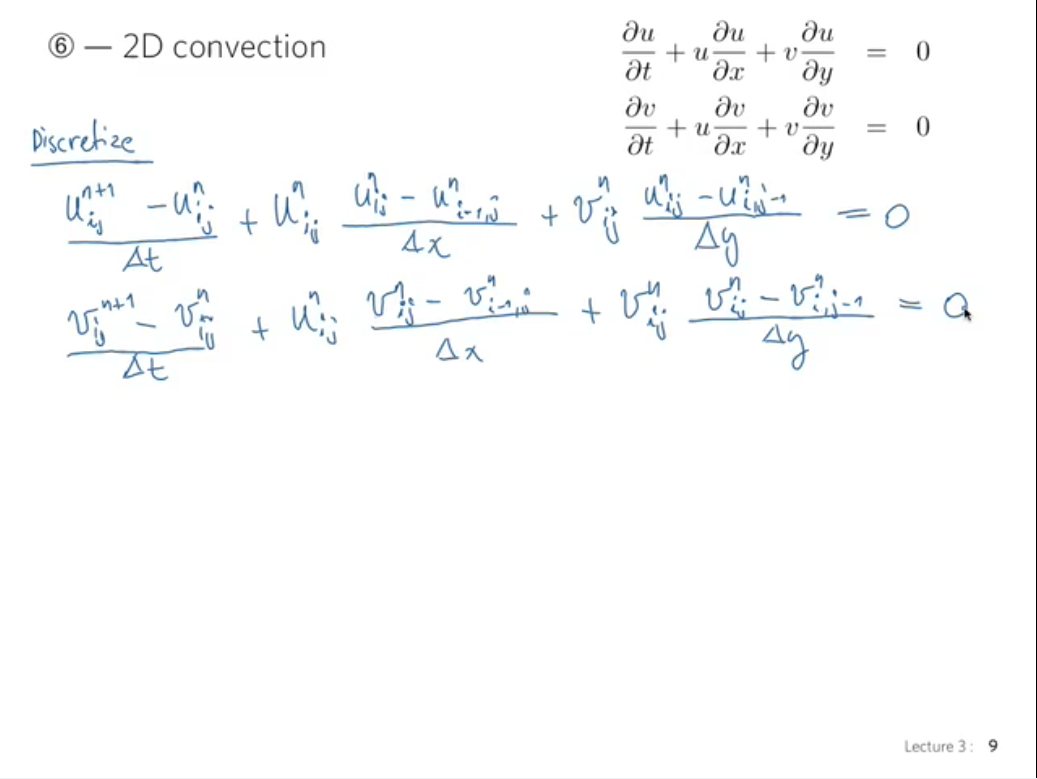 ⑥ — 2D convection
∂u/∂t + u ∂u/∂x + v ∂u/∂y = 0
∂v/∂t + u ∂v/∂x + v ∂v/∂y = 0
Discretize
(u_{ij}^{n+1} - u_{ij}^{n})/Δt + u_{ij}^{n} (u_{ij}^{n} - u_{i-1,j}^{n})/Δx + v_{ij}^{n} (u_{ij}^{n} - u_{i,j-1}^{n})/Δy = 0
(v_{ij}^{n+1} - v_{ij}^{n})/Δt + u_{ij}^{n} (v_{ij}^{n} - v_{i-1,j}^{n})/Δx + v_{ij}^{n} (v_{ij}^{n} - v_{i,j-1}^{n})/Δy = 0
Lecture 3 : 9